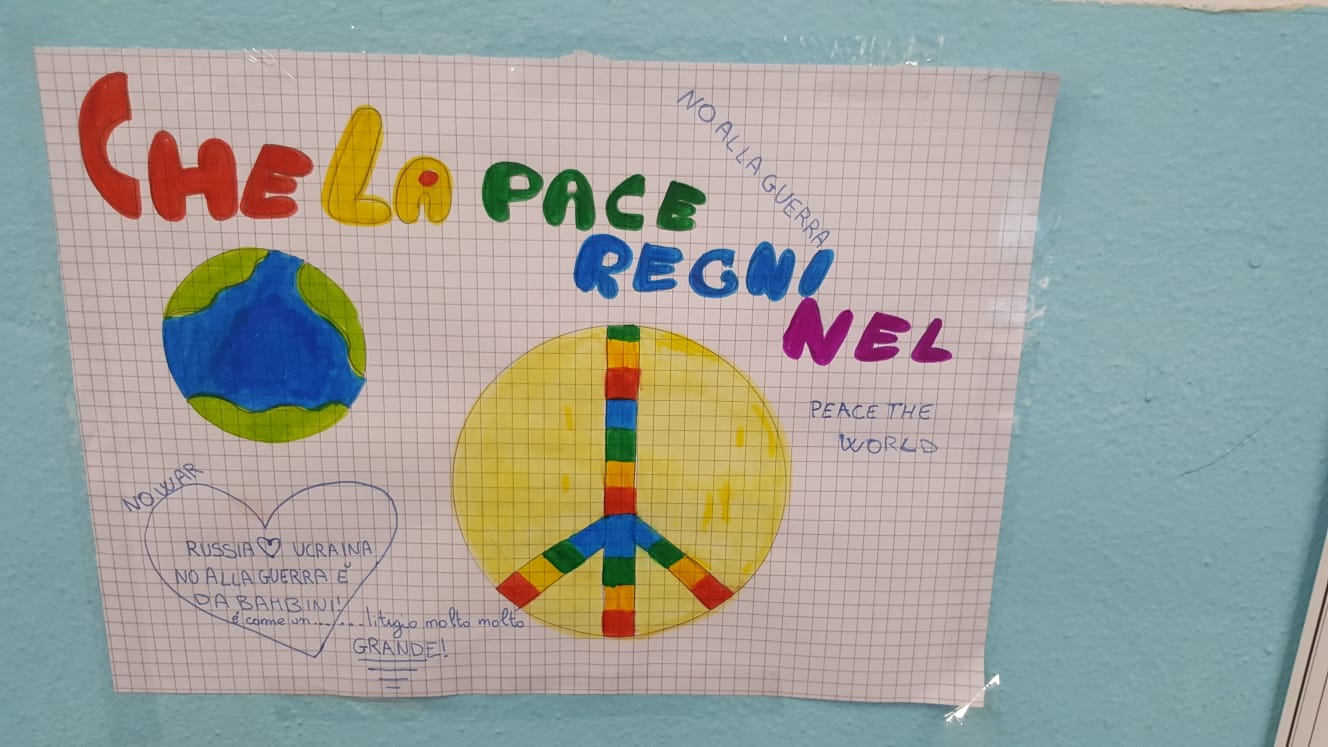 CHE LA PACE
REGNI
NEL
NO ALLA GUERRA
PEACE THE
WORLD
NO WAR
RUSSIA UCRAINA
NO ALLA GUERRA È
DA BAMBINI!
é come un.......litugio molto molto
GRANDE!